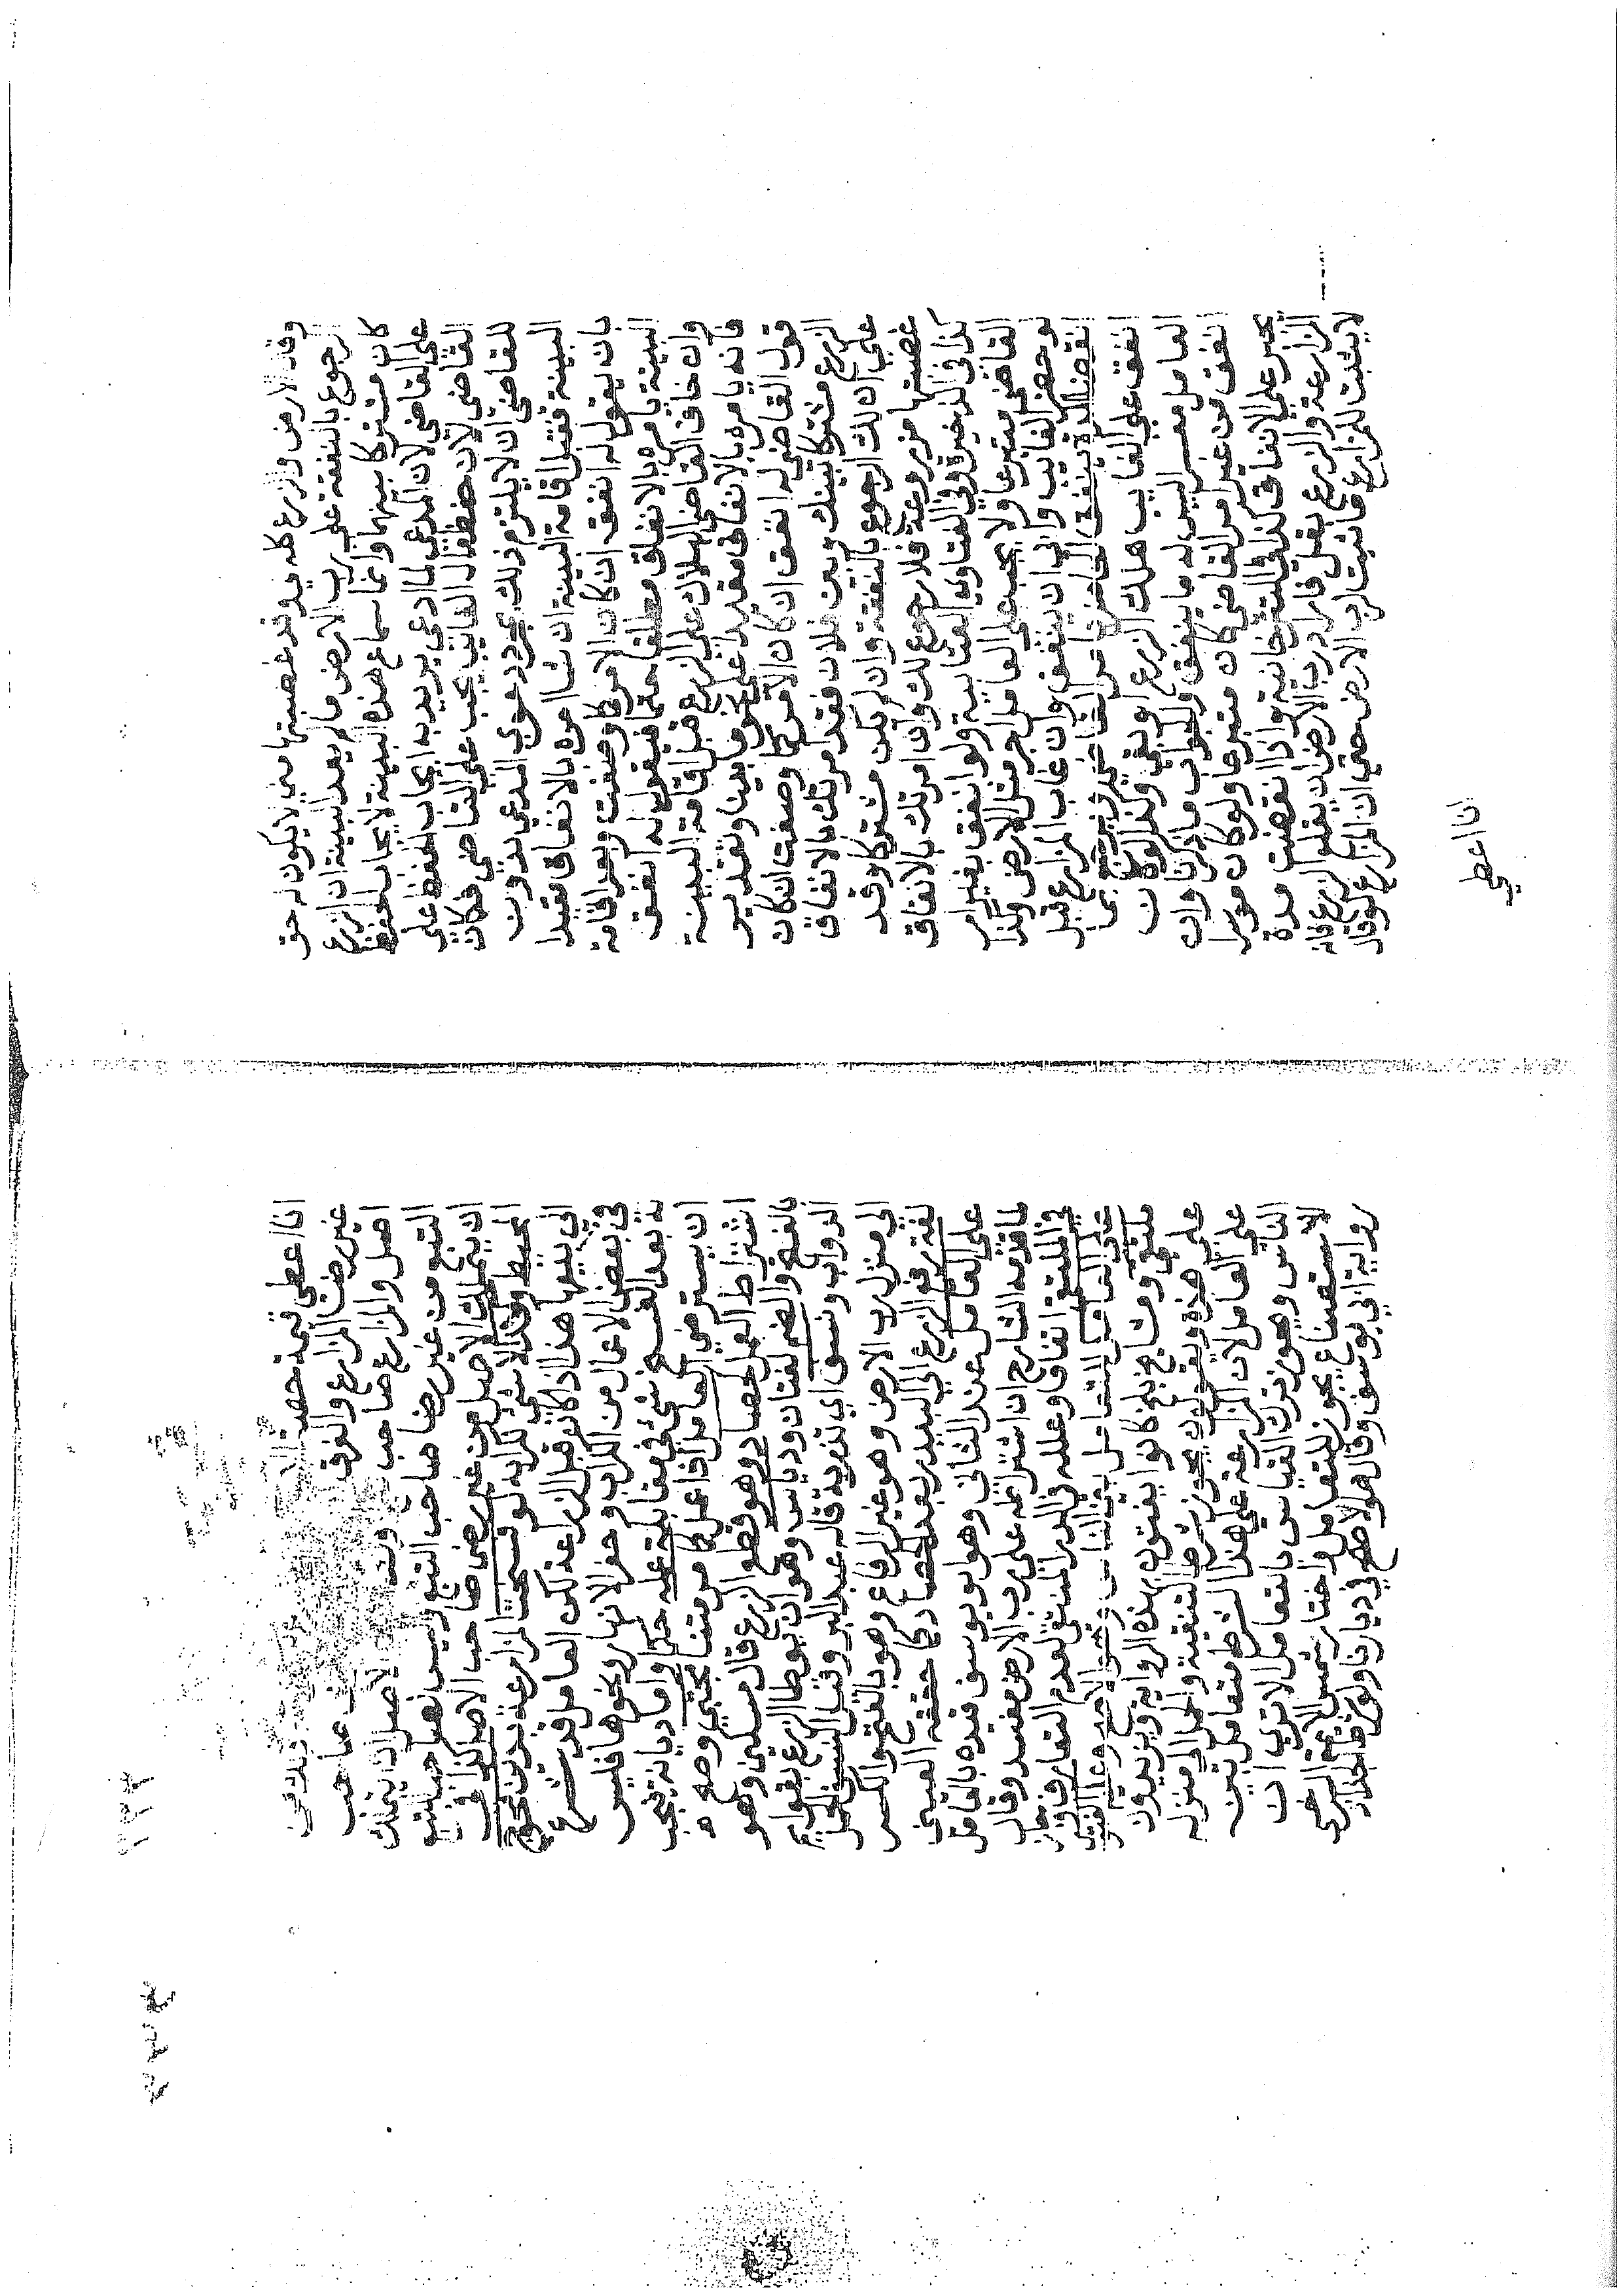 وقال الارض والزرع كله لي وقد غصبتها مني لا يكون له حق
الرجوع بالنفقة على رب الارض مالم يعد البينة ان الزرع
كان مشتركا بينهما وانما سماع هذه البينة لايجاب الحفظ
على القاضي لان المدعي لما ادعى يريد به ايجاب الحفظ على
القاضي لان حفظ مال الغايب يجب على القاضي فكان
للقاضي ان لا يلتزم ذلك بمجرد دعوي المدعي بدون
البينة فقبل اقامة البينة ان شا امره بالانفاق مقيدا
بان يقول له انفق ان كان الامر كما وصفت وبعد اقامة
البينة يامره بالانفاق مطلقا حتما فيقول له انفق
وان خاف القاضي الهلاك على الزرع قبل اقامة البينة
فانه يامره بالانفاق مقيدا على نحو ما بينا وتقدير
قول القاضي له انفق ان كان الامر كما وصفت ان كان
الزرع مشتركا بينك وبين فلان فقد امرتك بالانفاق
علي ان لك الرجوع بالنفقة وان لم يكن مشتركا وقد
غصبتها مزروعة فلا رجوع لك وان امرتك بالانفاق
كذا في الذخيرة وفي الفتاوي العتابية ولو انفق بغير امر
القاضي متبرعا ولا يجب علي العامل اجر مثل الارض وكذا
لو حضر الغايب وابي ان ينفق وان غاب المزارع قبل
انقضا المدة ينفق الحاضر بامر القاضي ثم يرجع بما
انفق علي الغايب هلك الزرع او بقي وكذا لو كان
العامل معسرا ليس له ما ينفق والجواب ما ذكرنا وان
انفق من غير امر القاضي كان متبرعا ولو كان موسرا
يجبر علي الانفاق كذا في التتارخانية واذا انقضت مدة
المزارعة والزرع بقل فاراد رب الارض ان يقلع الزرع فانه
لا يثبت للمزارع ما ثبت لرب الارض حتي ان المزارع لو قال
انا اعطي
انا اعطي قيمة حصة
غير رضا المزارع والفرق صاحب
اصل والمزارع صاحب لاصل ان يتملك
التبع من غير رضا صاحب التبع وليس لصاحب التبع
ان يتملك الاصل من غير رضي صاحب الاصل كذا في
المحيط وقالا لا شي لكرابه لو فسخت المزارعة بدين محوج
الى بيعها هذا اذا كان قبل الزراعة لكن العامل قد شرع
في بعض الاعمال من الكراب وحفر الانهار ونحوها فليس
له بعد الفسخ شي في مقابلة عمله حكما واما ديانة فيجب
ان يسترضي العامل اذا عمل كما مر متنا مجتبى وصح
اشتراط العمل لحصاد وهو قطع الزرع قال مسكين وهو
بالفتح والضم لغتان ودياس وهو ان يوطا الزرع بقوايم
الدواب ونسف اي تذرية قاله عبد البر وقيل النسف الحمل
الى منزل رب الارض وهو غير الرفاع وهو بالفتح والكسر
لغة رفع الزرع الى البيدر بعد الحصاد كما حققه العيني
علي العامل عند الثاني وهو ابو يوسف قيده بالعامل
لما قدمه الشارح ان اشتراطه علي رب الارض مفسد وقال
في الملتقي اتفاقا وعلله في الدر المنتقي لعدم التعارف
ملتقي ومشايخ بلخ كانوا يفتون بهذه الرواية ويزيدون
علي هذه ويقولون يجوز شرط التنقية والحمل الي منزله
علي العامل لان المزارعة علي هذا الشرط متعامل بين
الناس ويجوز ترك القياس بالتعامل الا تري ان
الاستصناع يجوز للتعامل واختار شمس الايمة السرخسي
رواية ابي يوسف وقال هو الاصح في ديارنا ولو شرط الجداد